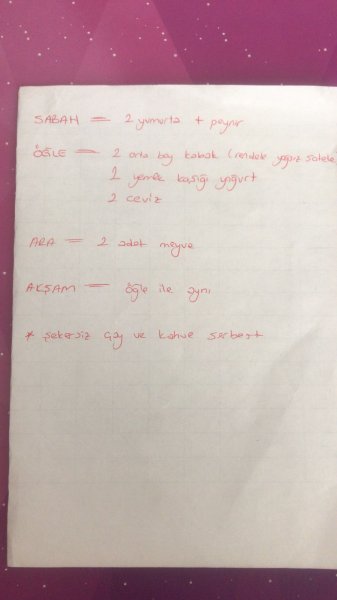 SABAH = 2 yumurta + peynir
ÖĞLE = 2 orta boy kabak (rendele yağsız sotele
1 yemek kaşığı yoğurt
2 ceviz
ARA = 2 adet meyve
AKŞAM = öğle ile aynı
* şekersiz çay ve kahve serbest